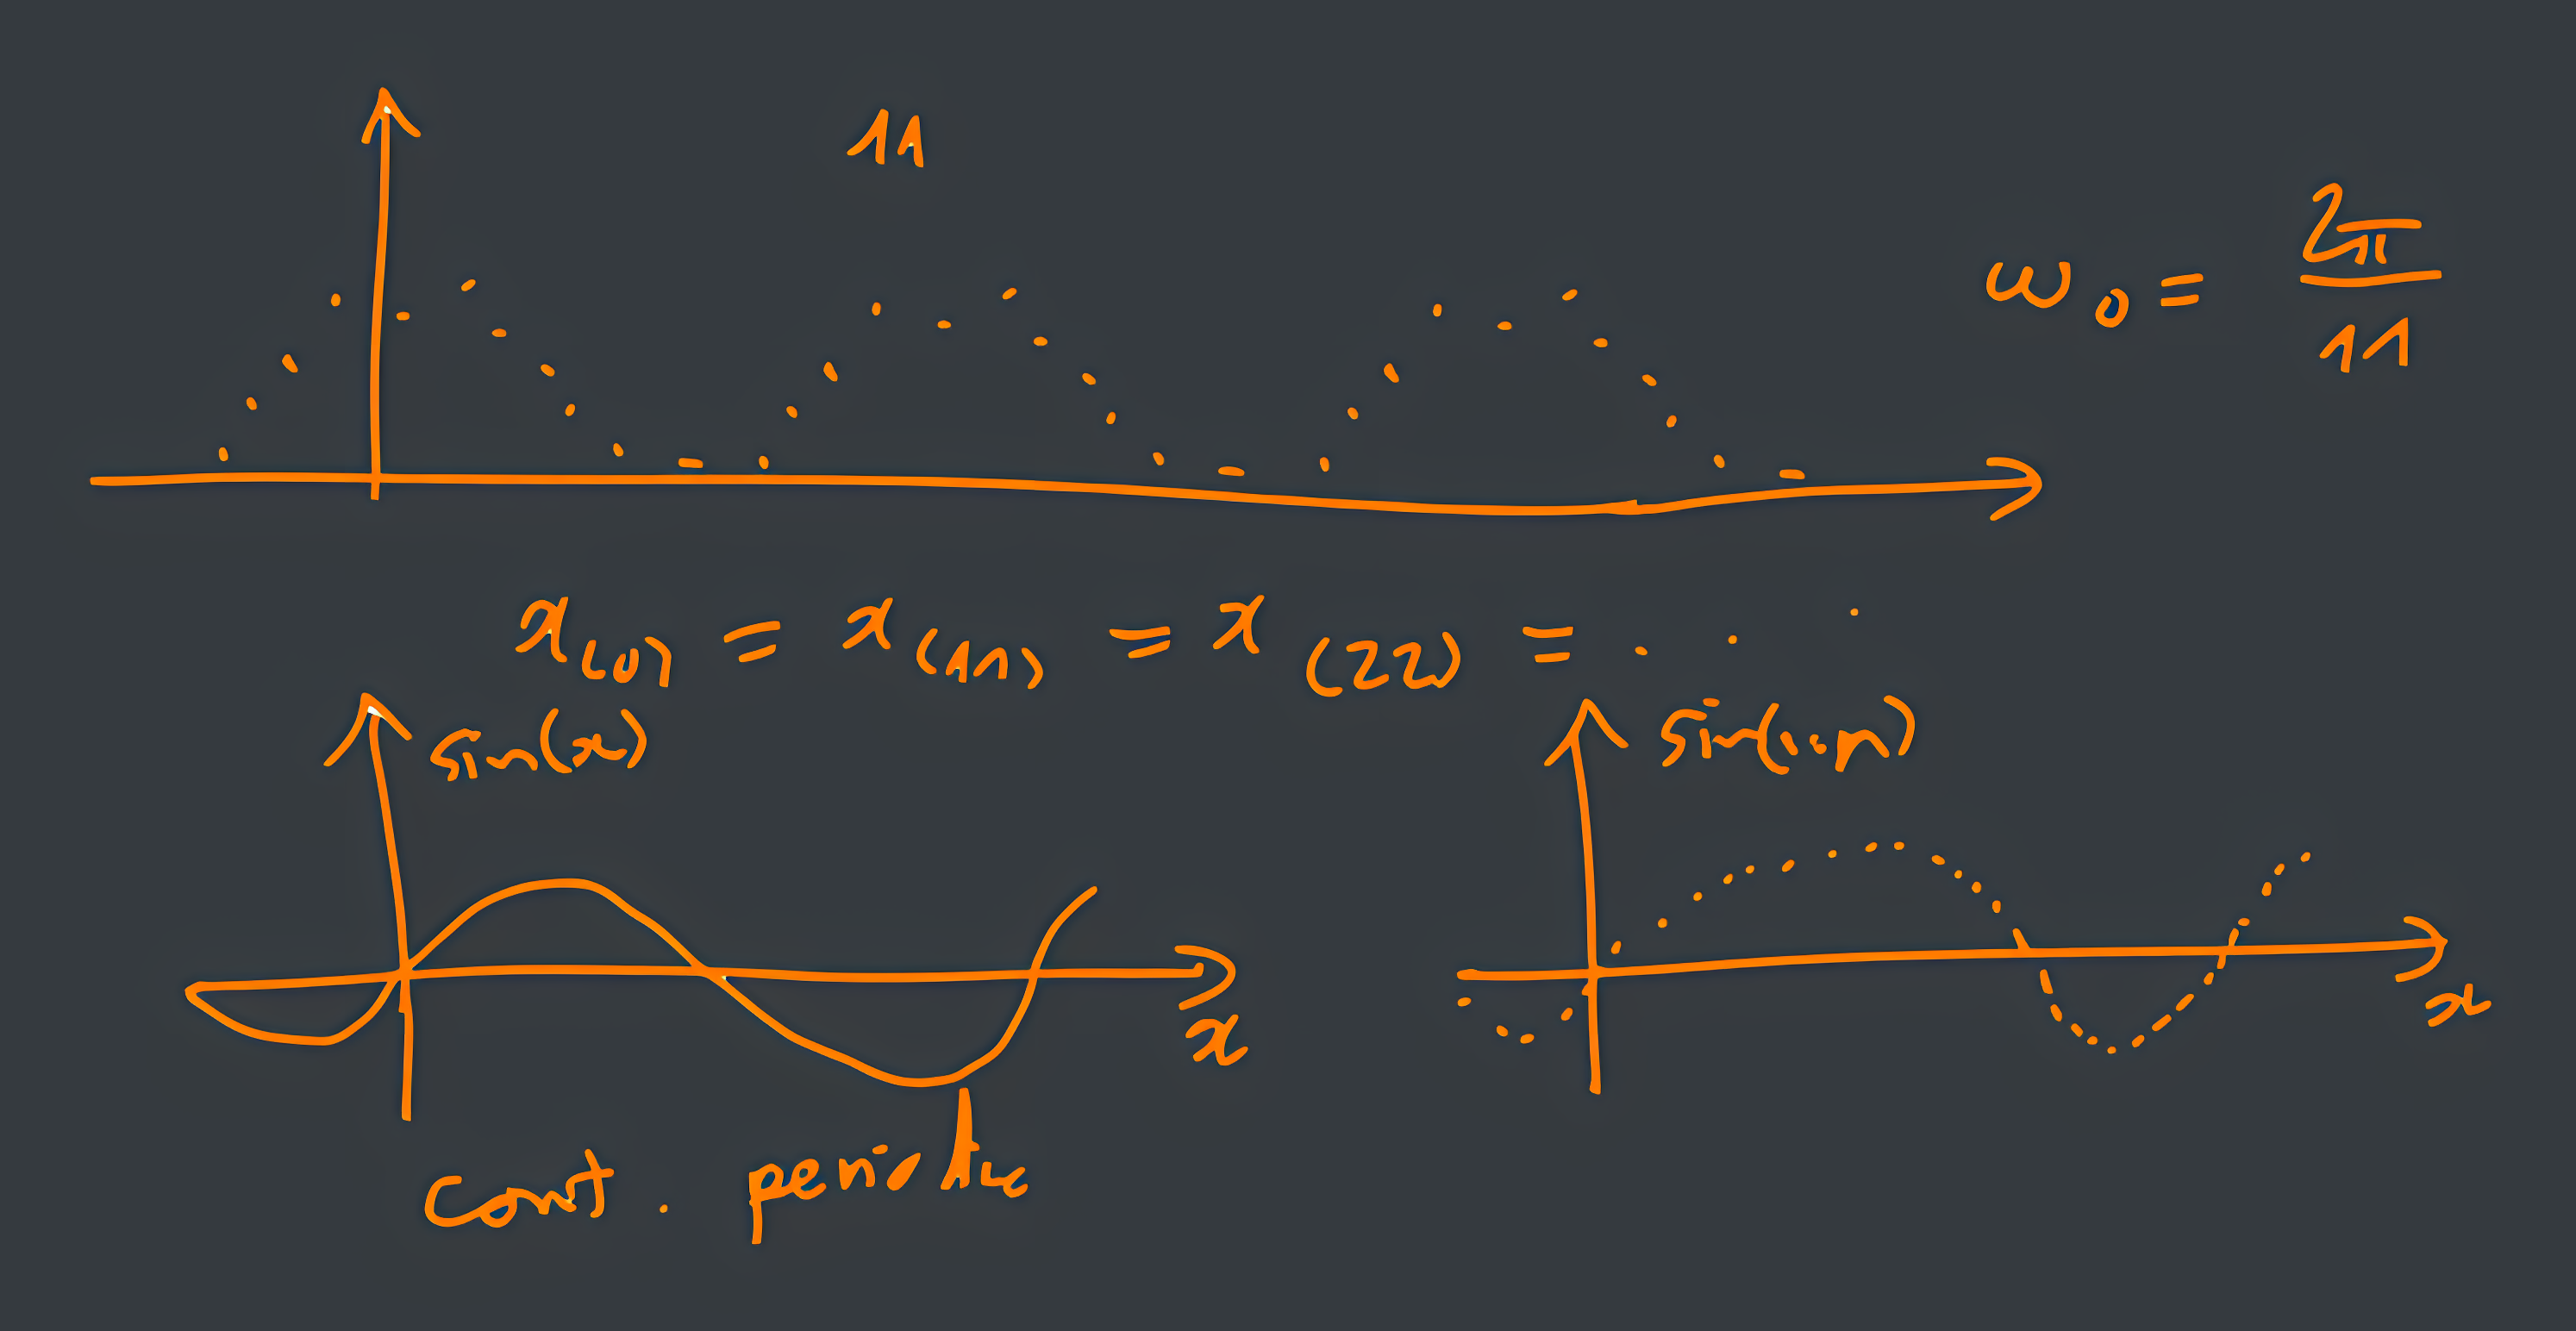 11
ω₀ = 2π/11
x(0) = x(11) = x(22) = . . .
sin(x)
x
x
cont. periodic